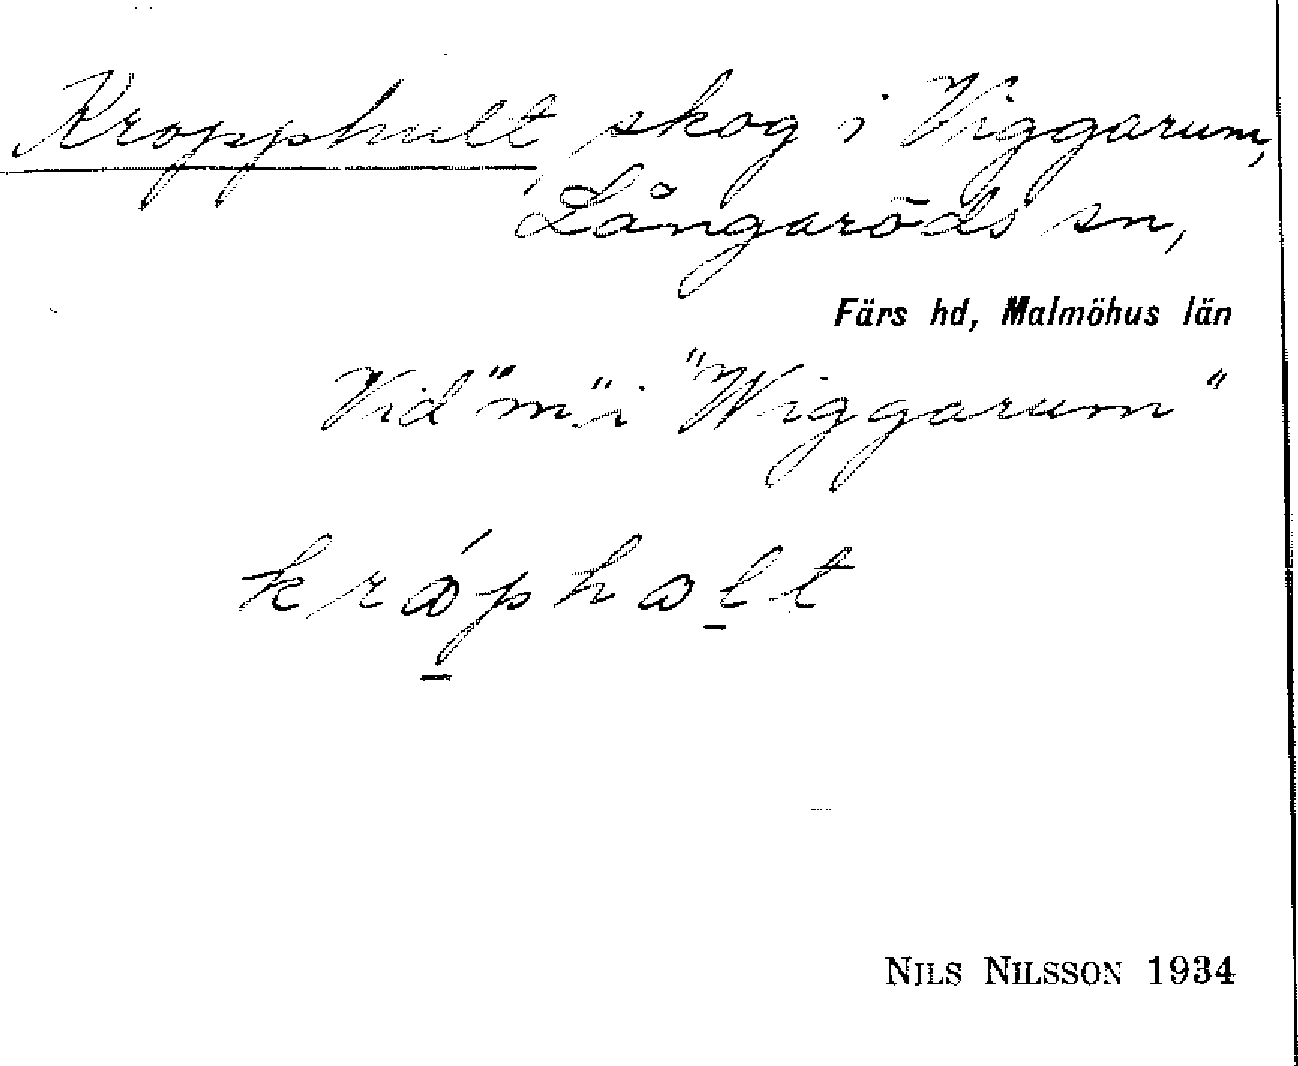 Kropphult, skog i Viggarum,
Långaröds sn,
Färs hd, Malmöhus län
Vid "m" i "Wiggarum"
króphalt
NILS NILSSON 1934